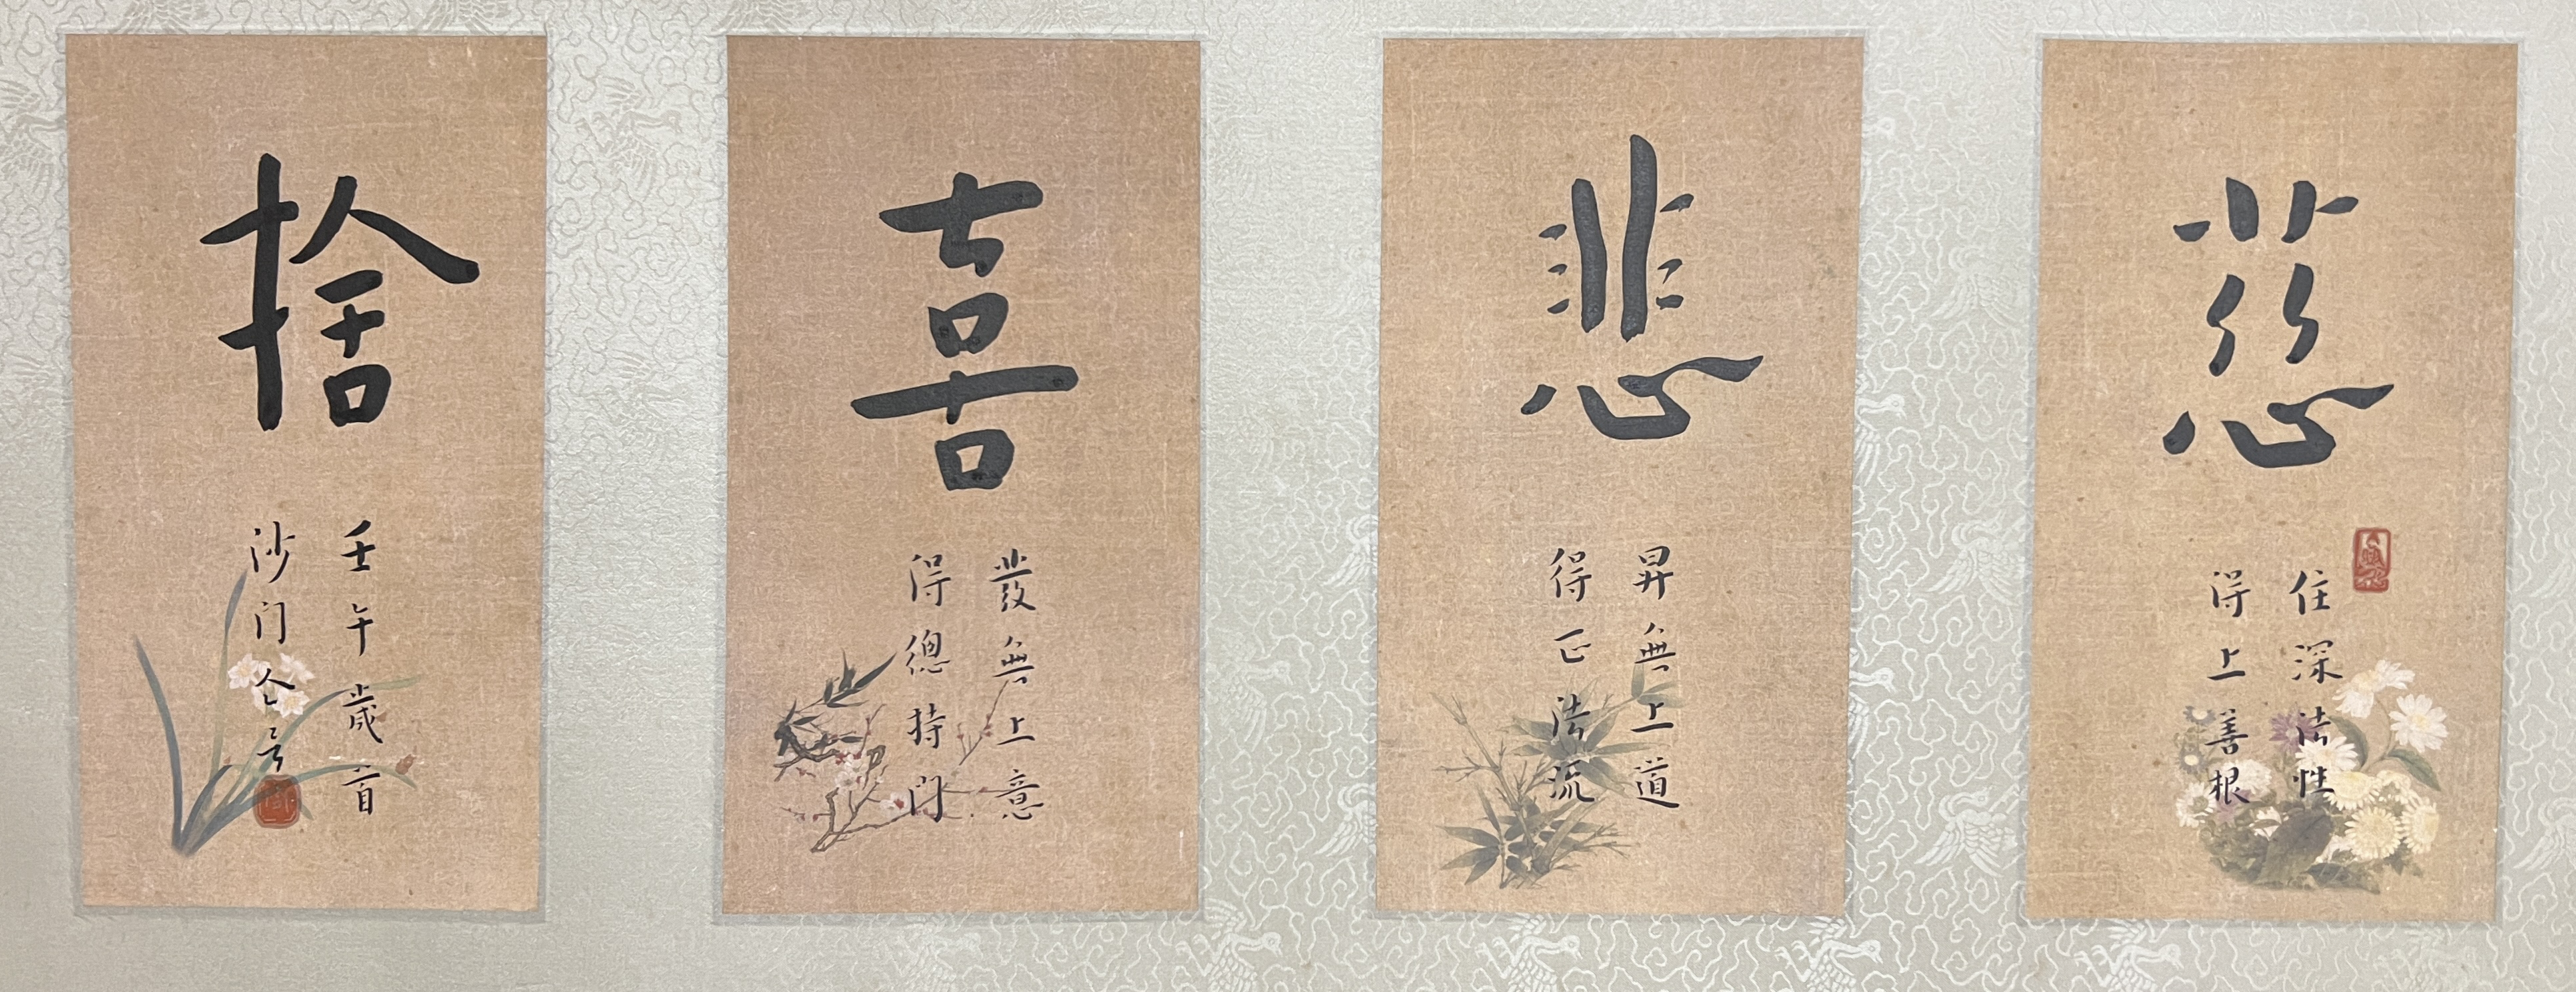 慈
住深法性
得上善根
悲
昇無上道
得正法流
喜
發無上意
得總持門
捨
壬午歲首
沙门